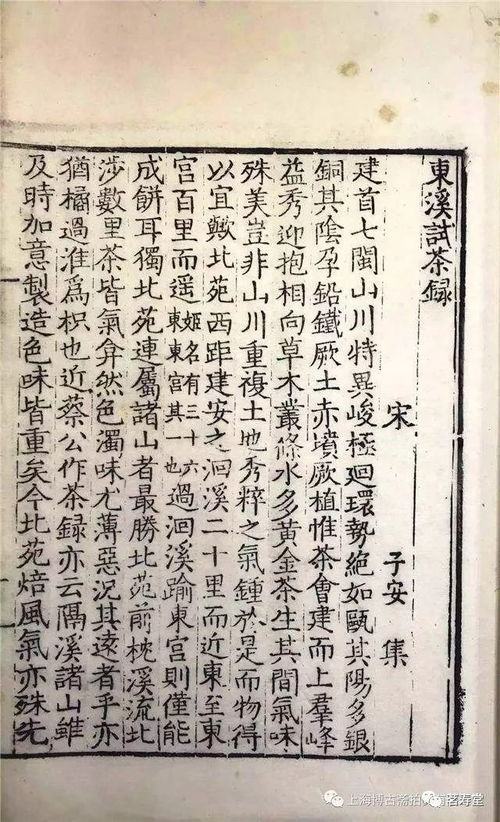 東溪試茶録
宋 子安 集
建首七閩山川特異峻極迴環勢絕如甌其陽多銀
銅其陰孕鉛鐵厥土赤墳厥植惟茶會建而上羣峰
益秀迎抱相向草木叢條水多黃金茶生其間氣味
殊美豈非山川重複土地秀粹之氣鍾於是而物得
以宜歟北苑西距建安之洄溪二十里而近東至東
宮百里而遥姬名有三十六東東宮其一也過洄溪踰東宮則僅能
成餅耳獨北苑連屬諸山者最勝北苑前枕溪流北
涉數里茶皆氣弇然色濁味尤薄惡況其遠者乎亦
猶橘過淮爲枳也近蔡公作茶録亦云隔溪諸山雖
及時加意製造色味皆重矣今北苑焙風氣亦殊先
上海博古斋拍 茗寿堂